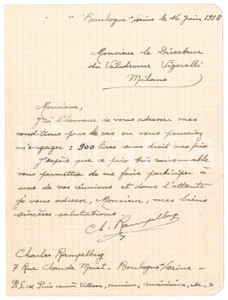 Boulogne s/seine le 16 juin 1938
Monsieur le Directeur
du Vélodrome Vigorelli
Milano
Monsieur,
J'ai l'honneur de vous adresser mes
conditions pour le cas ou vous pourriez
m'engager : 900 lires san droit aux prix.
J'espère que ce prix très raisonnable
vous permettra de me faire participer à
une de vos réunions et dans l'attente
je vous adresse, Monsieur, mes biens
sincères salutations.
Ch. Rampelberg
Charles Rampelberg
7 Rue Claude Monet, Boulogne s/seine
P.S. Je Puis courir omnium, américaine, etc.